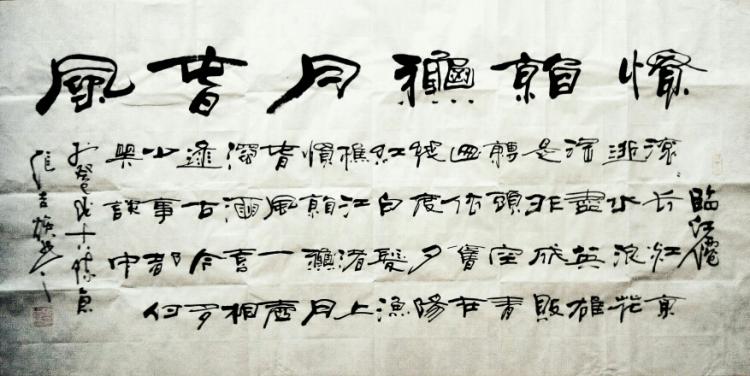 慣看龝月春風
臨江僊
滚滚長江東
逝水浪花
淘盡英雄
是非成敗
轉頭空青
山依舊在
幾度夕陽
紅白髮漁
樵江渚上
慣看龝月
春風一壺
濁酒喜相
逢古今多
少事都付
笑談中
於癸巳